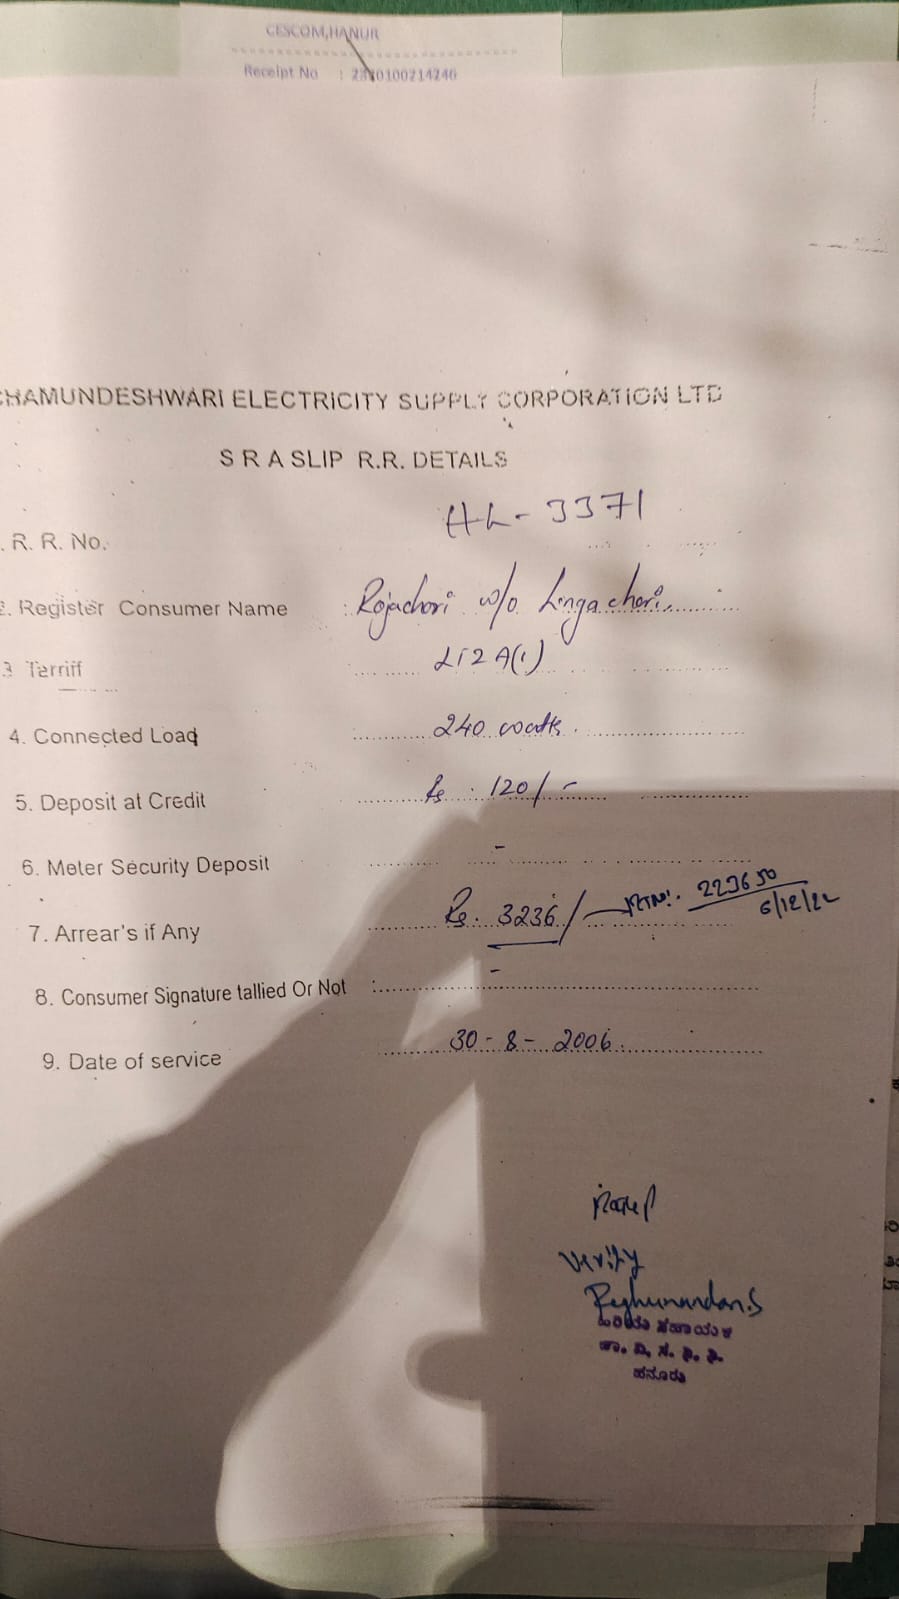 CESCOM,HANUR
Receipt No : 2320100214246
CHAMUNDESHWARI ELECTRICITY SUPPLY CORPORATION LTD
S R A SLIP R.R. DETAILS
. R. R. No. HL-3371
2. Register Consumer Name : Rojachori w/o Lingachori.
3 Terriff LT2 A(1)
4. Connected Load 240 watts.
5. Deposit at Credit Rs. 120/-
6. Meter Security Deposit -
7. Arrear's if Any Rs. 3236/ 229650
6/12/22
8. Consumer Signature tallied Or Not : -
9. Date of service 30-8-2006.
Verify
Raghunandan.S
ಹಿರಿಯ ಸಹಾಯಕ
ಹನೂರು